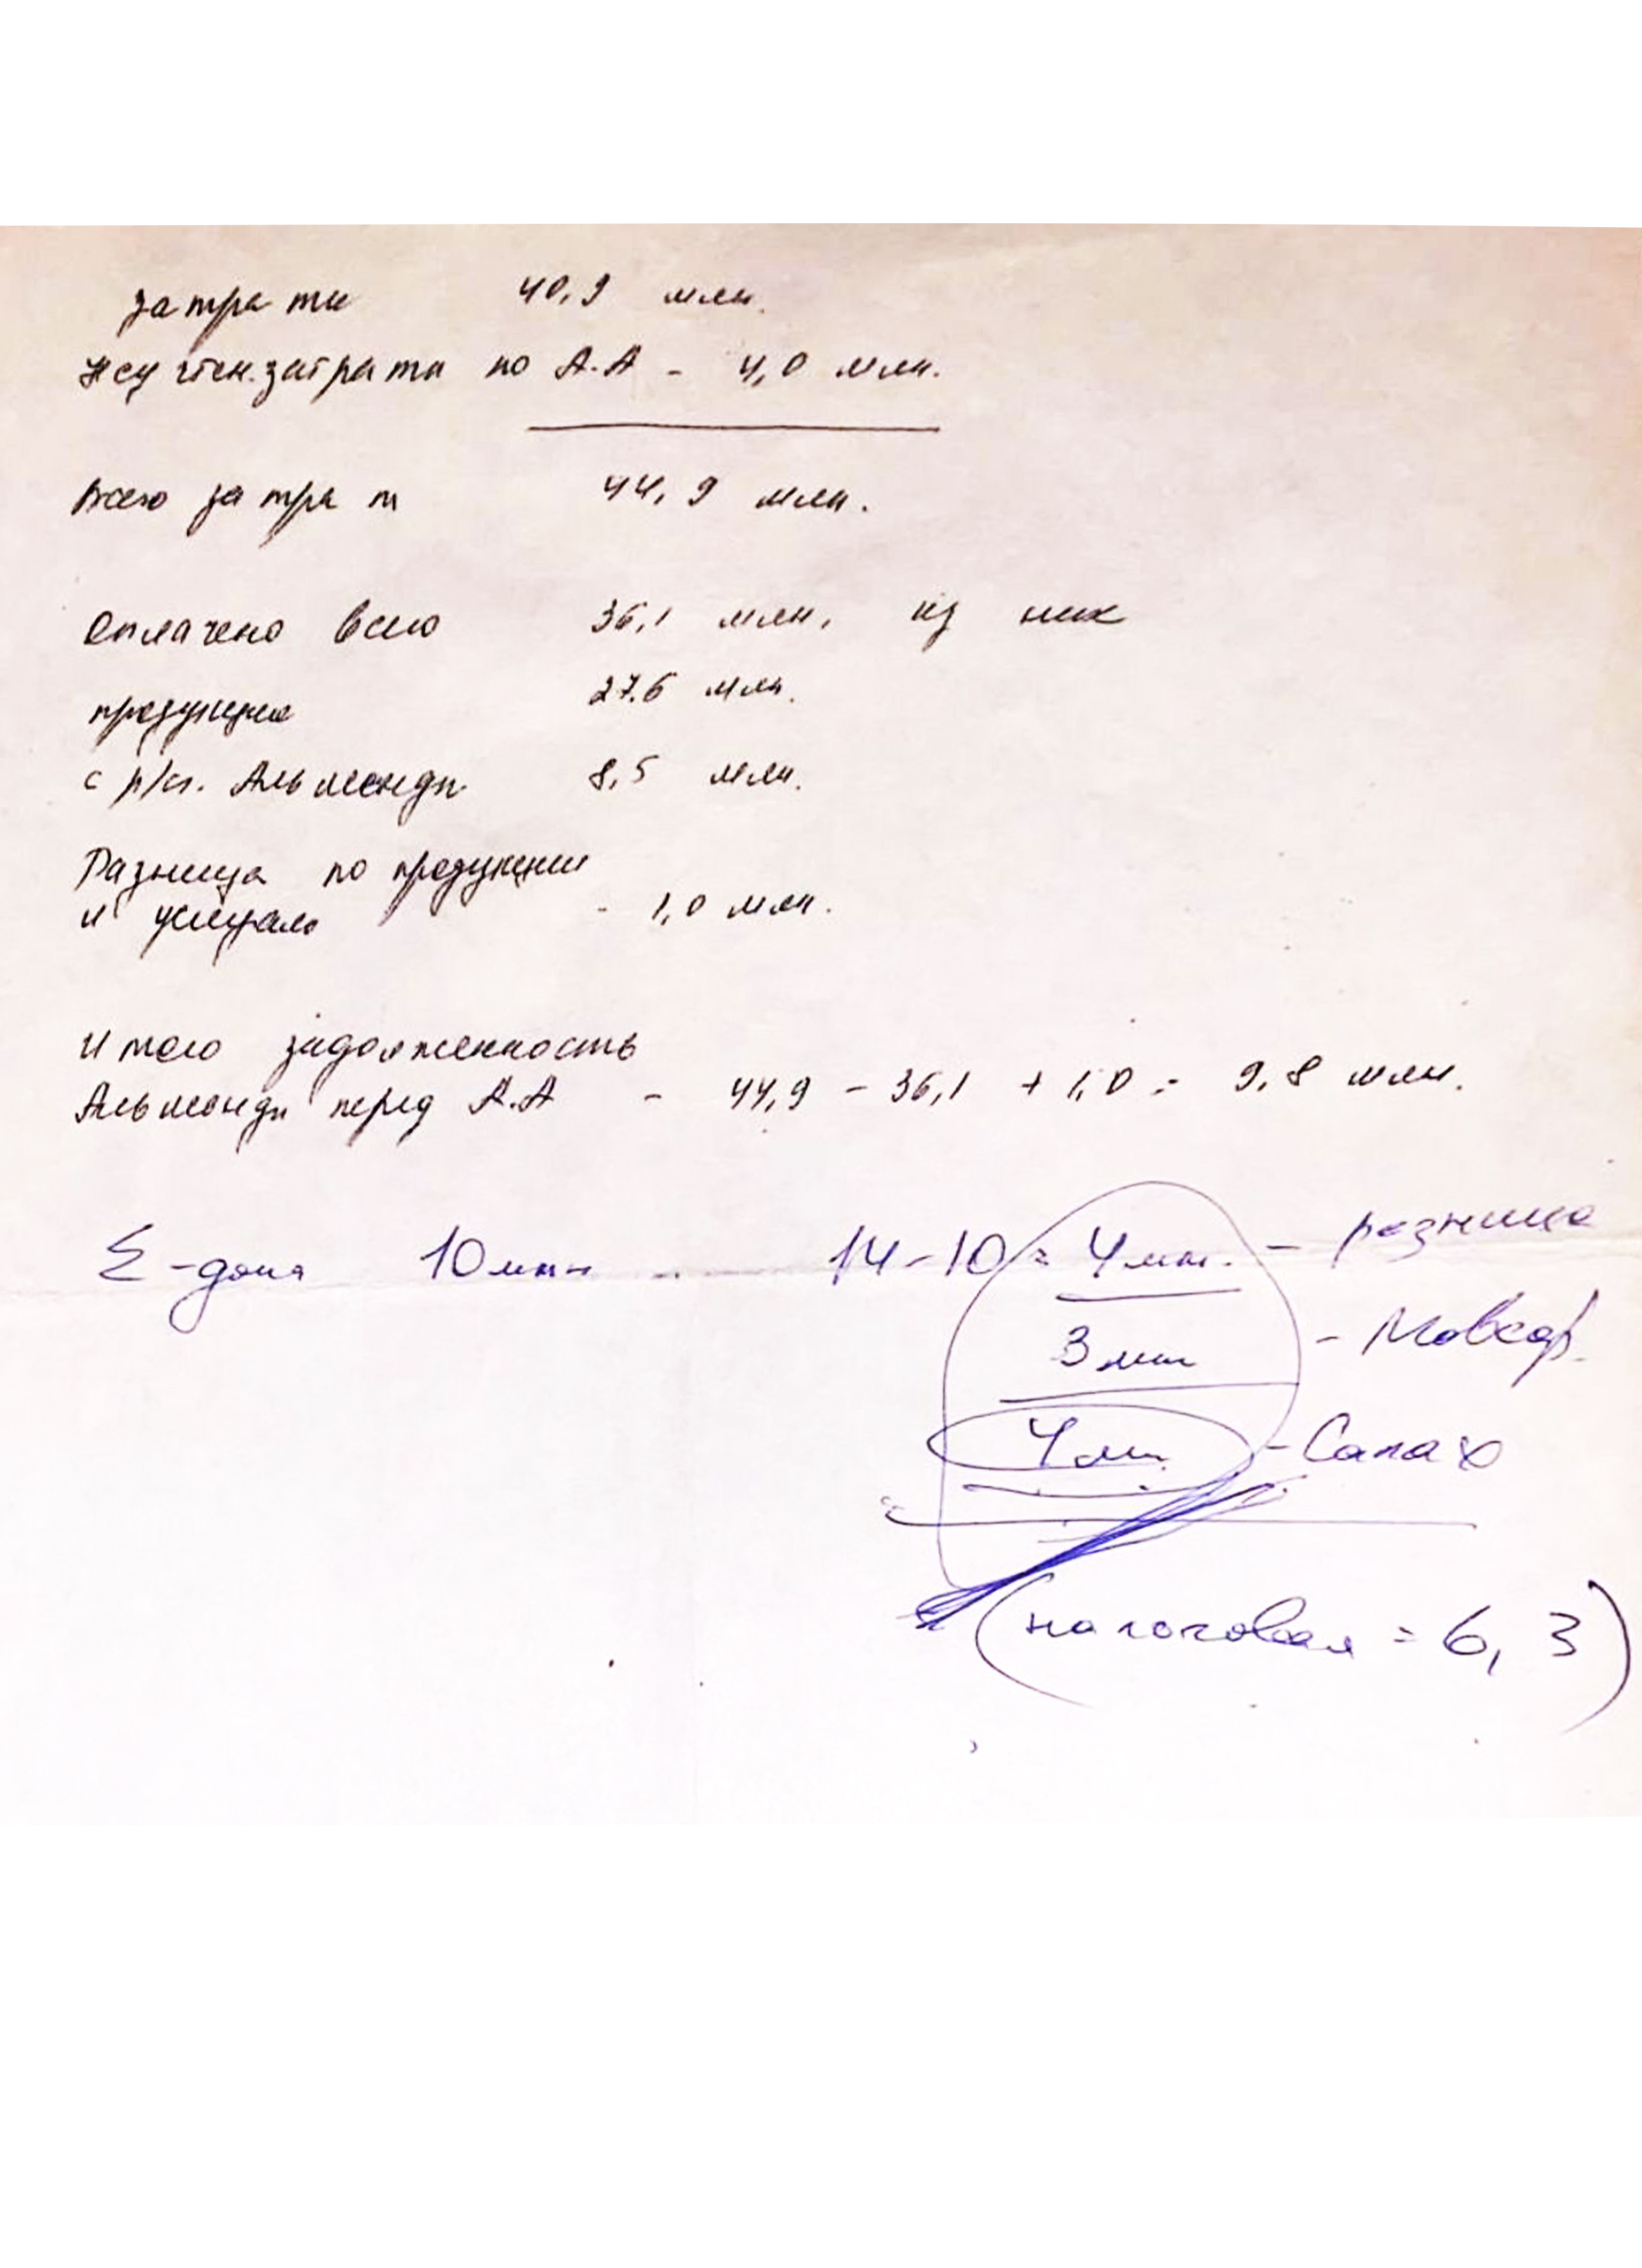 затраты 40,9 млн.
Неучтен. затраты по А.А - 4,0 млн.
Всего затрат 44,9 млн.
Оплачено всего 36,1 млн, из них
продукция 27.6 млн.
с р/сч. Альмонди 8,5 млн.
Разница по продукции
и услугам - 1,0 млн.
Итого задолженность
Альмонди перед А.А - 44,9 - 36,1 + 1,0 = 9,8 млн.
Σ-доля 10 млн 14-10 = 4 млн. - разница
3 млн - Мовсар.
4 мл. - Салах
(налоговая = 6,3)